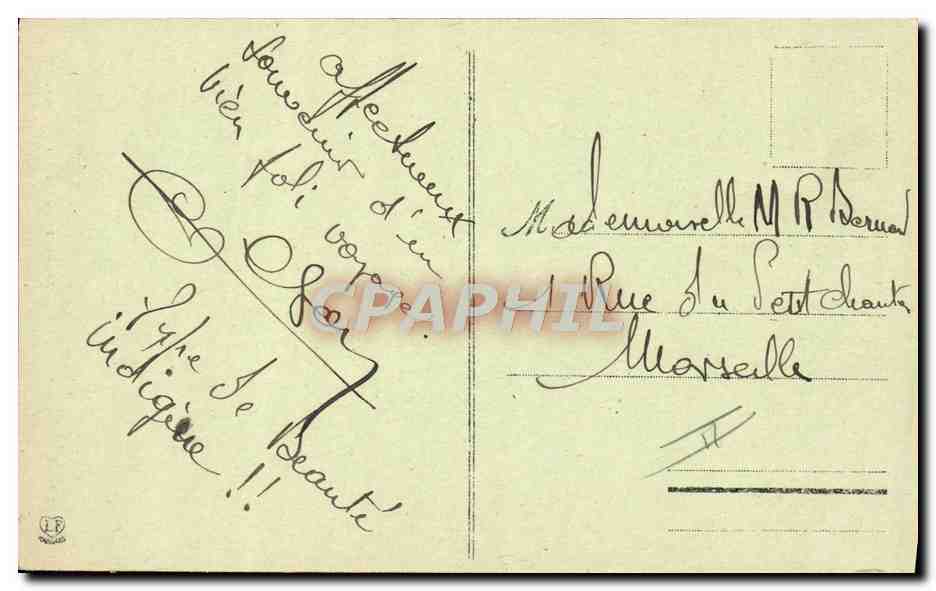 affectueux
souvenir d'un
bien joli voyage.
Type de Beauté
indigène !!
Mademoiselle M R Bernard
1 Rue du Petit Chantier
Marseille
II
CPAPHIL